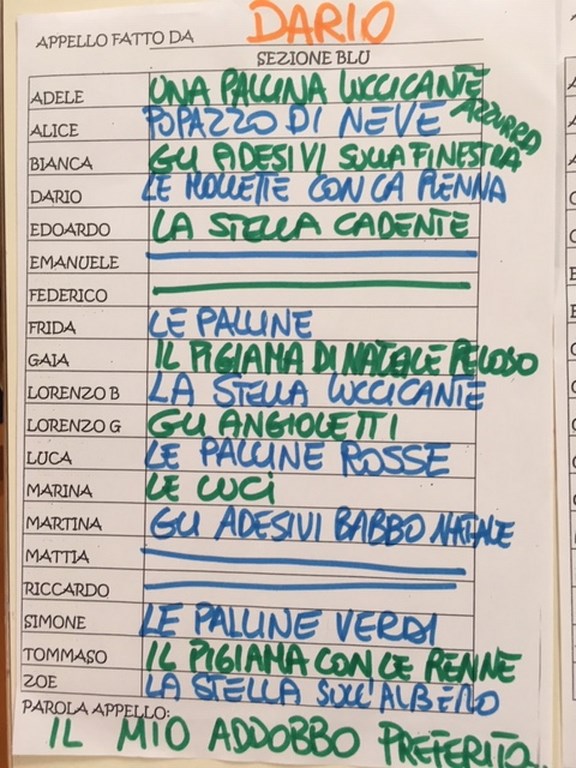 APPELLO FATTO DA DARIO
SEZIONE BLU
ADELE UNA PALLINA LUCCICANTE AZZURRA
ALICE PUPAZZO DI NEVE
BIANCA GLI ADESIVI SULLA FINESTRA
DARIO LE MOLLETTE CON LA RENNA
EDOARDO LA STELLA CADENTE
EMANUELE
FEDERICO
FRIDA LE PALLINE
GAIA IL PIGIAMA DI NATALE PELOSO
LORENZO B LA STELLA LUCCICANTE
LORENZO G GLI ANGIOLETTI
LUCA LE PALLINE ROSSE
MARINA LE LUCI
MARTINA GLI ADESIVI BABBO NATALE
MATTIA
RICCARDO
SIMONE LE PALLINE VERDI
TOMMASO IL PIGIAMA CON LE RENNE
ZOE LA STELLA SULL'ALBERO
PAROLA APPELLO:
IL MIO ADDOBBO PREFERITO..